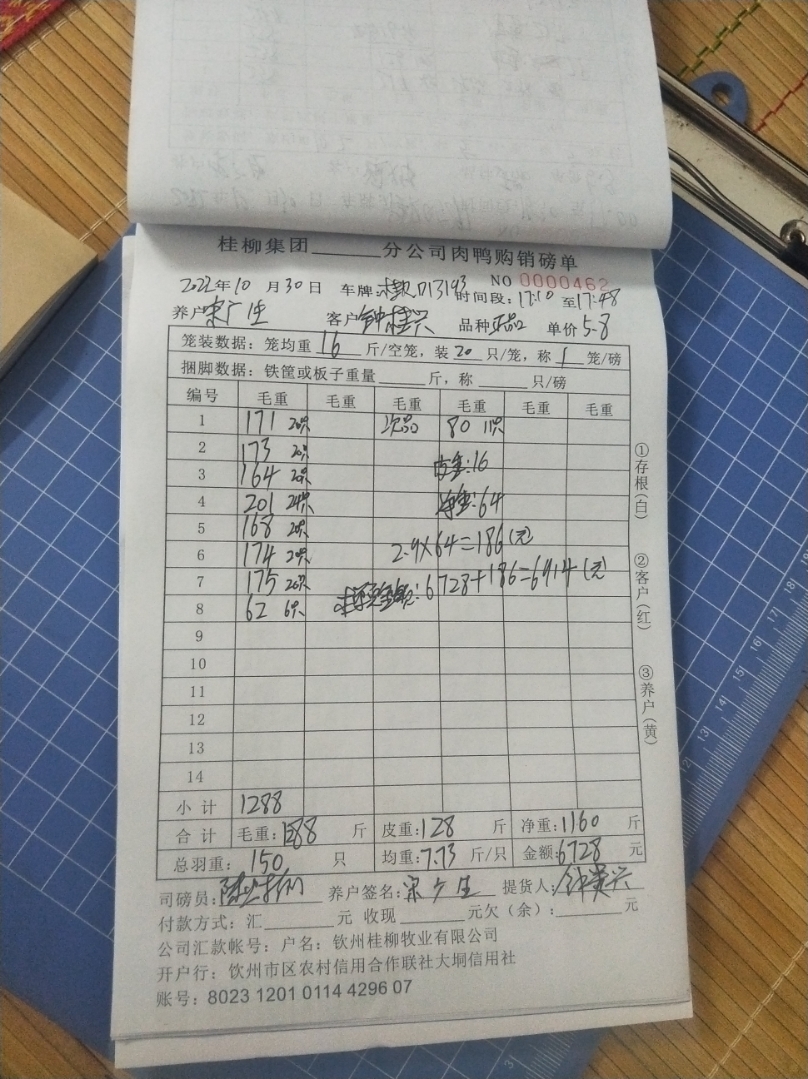 桂柳集团______分公司肉鸭购销磅单
NO 0000462
2022年10月30日 车牌: D13193 时间段:17:10至17:48
养户宋广生 客户钟桂兴 品种正品 单价5.8
笼装数据:笼均重16斤/空笼,装20只/笼,称1笼/磅
捆脚数据:铁筐或板子重量______斤,称______只/磅
编号 毛重 毛重 毛重 毛重 毛重 毛重
1 171 20只 次品 80 11只
2 173 20只
3 164 20只 皮重:16
4 201 24只 净重:64
5 168 20只
6 174 20只 2.9×64=186(元)
7 175 20只 :6728+186=6914(元)
8 62 6只
9
10
11
12
13
14
小计 1288
合计 毛重:1288斤 皮重:128斤 净重:1160斤
总羽重:150只 均重:7.73斤/只 金额:6728元
司磅员: 养户签名:宋广生 提货人:钟
付款方式:汇______元 收现______元欠(余):______元
公司汇款帐号:户名:钦州桂柳牧业有限公司
开户行:钦州市区农村信用合作联社大垌信用社
账号:8023 1201 0114 4296 07
①存根(白)
②客户(红)
③养户(黄)